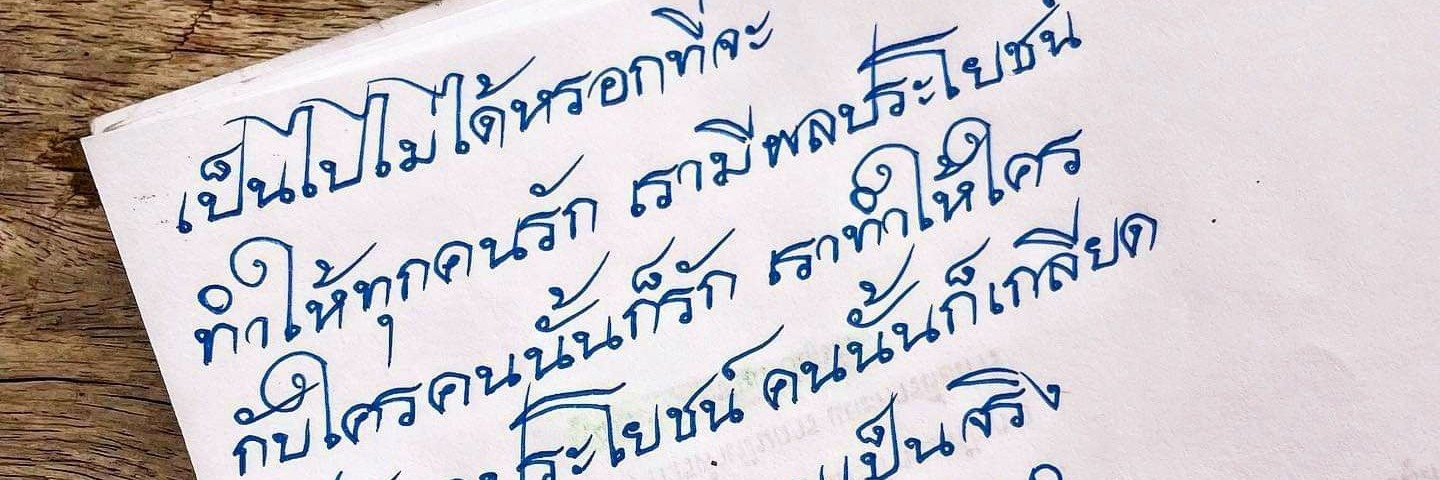 เป็นไปไม่ได้หรอกที่จะ
ทำให้ทุกคนรัก เรามีผลประโยชน์
กับใครคนนั้นก็รัก เราทำให้ใคร
ประโยชน์ คนนั้นก็เกลียด
เป็นจริง